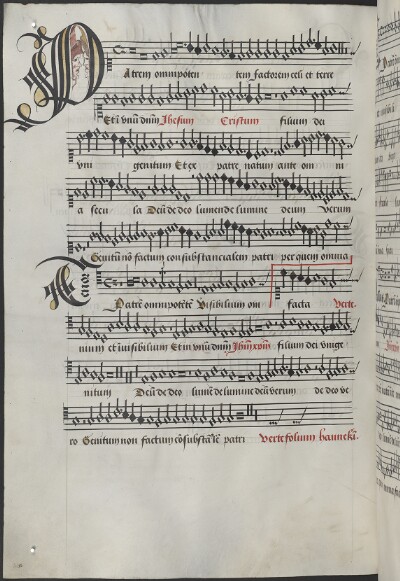 Atrem omnipoten tem factorem celi et terre
Et i vnū dnm̄ Jhesum Cristum filium dei
vni genitum Et ex patre natum ante om ni
a secu la Deū de deo lumen de lumine deum verum
Genitū nō factum consubstancialem patri per quem omnia
Tenor
Patrē omnipotētē visibilium om facta verte.
nium et invisibilium Et in vnū dnm̄ Jhm̄ xpm̄ filium dei vnige
nitum Deū de deo lumē de lumine deū verum de deo ve
ro Genitum non factum cōsubstālē patri verte folium